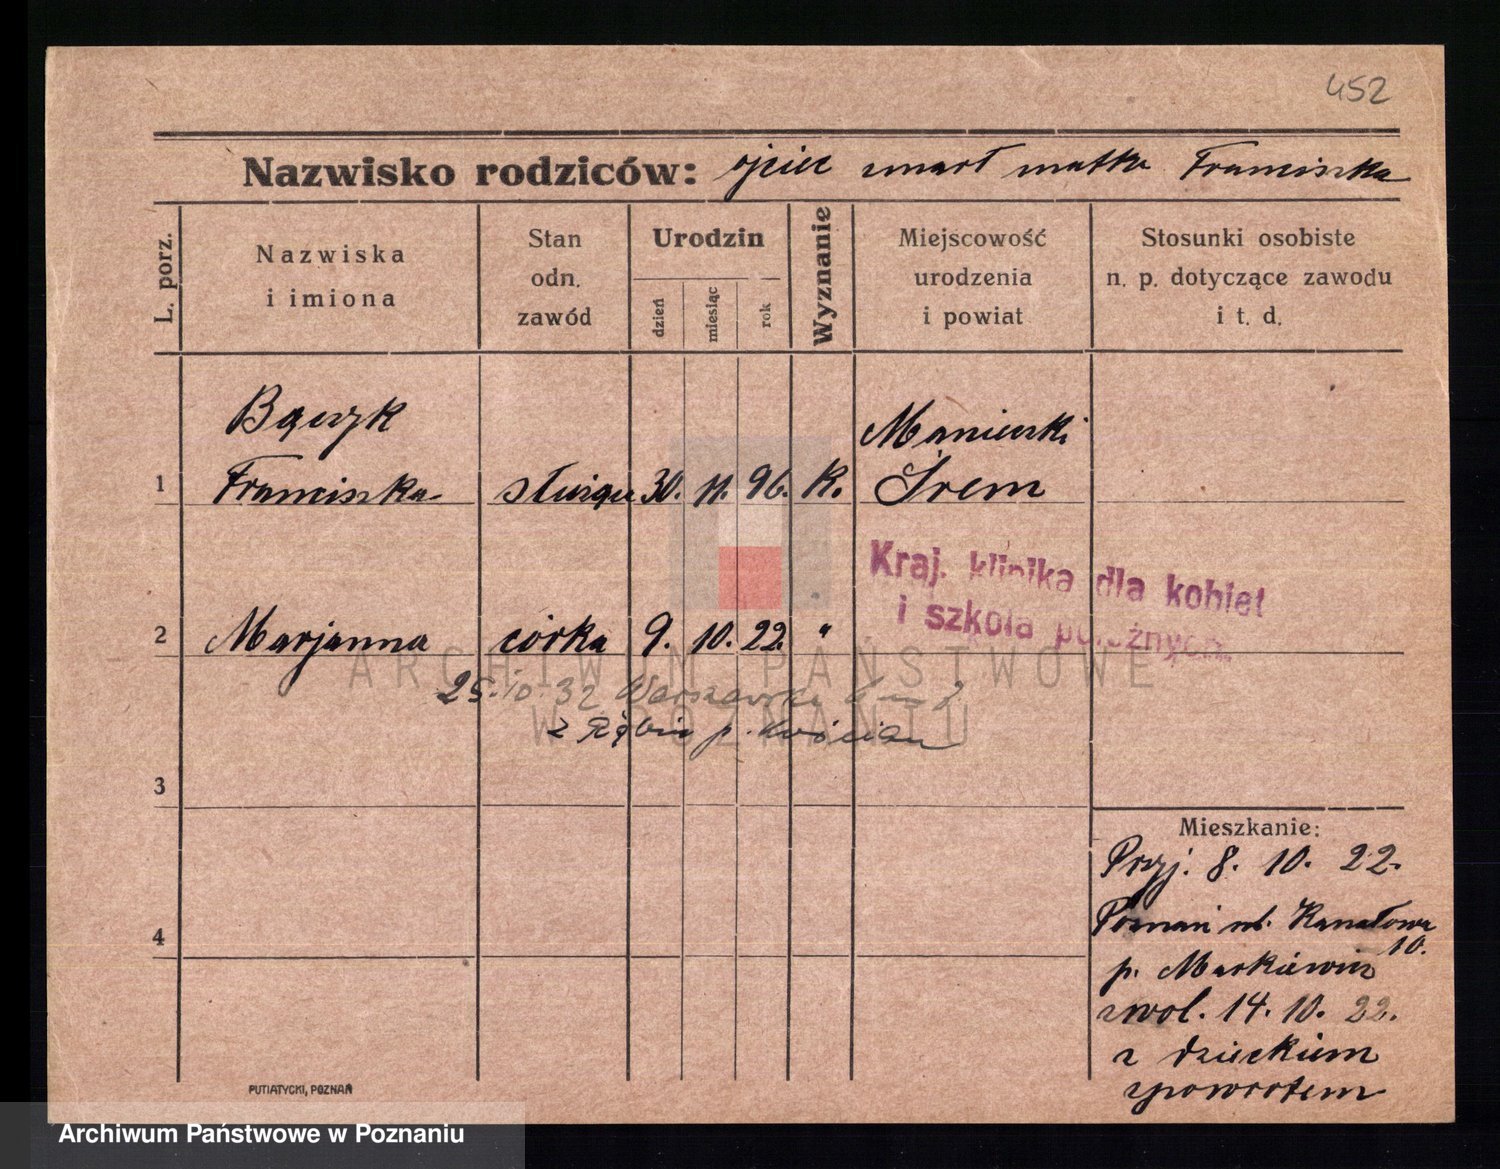 452
Nazwisko rodziców: ojciec zmarł matka Franciszka
L. porz.
Nazwiska
i imiona
Stan
odn.
zawód
Urodzin
dzień
miesiąc
rok
Wyznanie
Miejscowość
urodzenia
i powiat
Stosunki osobiste
n. p. dotyczące zawodu
i t. d.
Bączyk Manieczki
1 Franciszka służąca 30. 11. 96. K. Śrem
Kraj. klinika dla kobiet
i szkoła położnych.
2 Marjanna córka 9. 10. 22. "
ARCHIWUM PAŃSTWOWE
25.10.32 Warszawska
W POZNANIU
z p.
3
Mieszkanie:
Przyj. 8. 10. 22.
Poznań ul. Kanałowa
10.
4
p. Markiewicz
zwol. 14. 10. 22.
z dzieckiem
zpowrotem
PUTIATYCKI, POZNAŃ
Archiwum Państwowe w Poznaniu